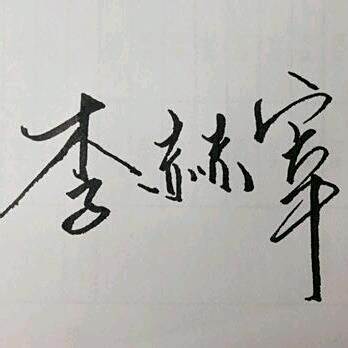 李赫宰